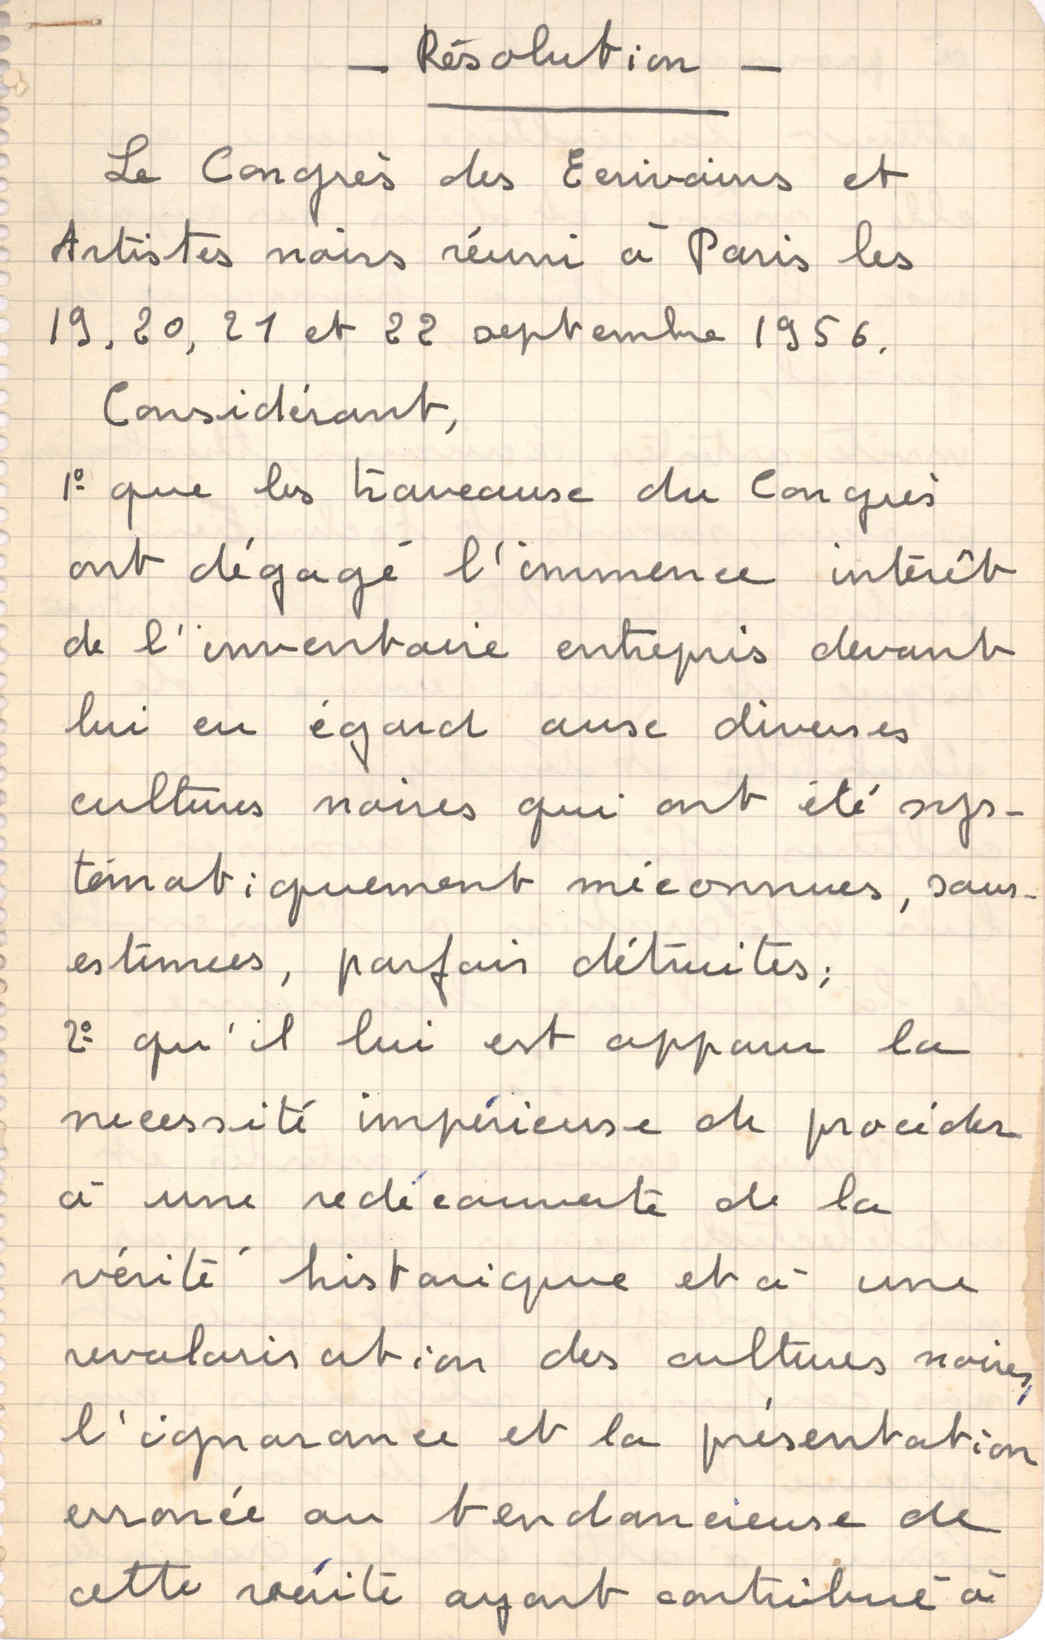 - Résolution -
Le Congrès des Ecrivains et
Artistes noirs réuni à Paris les
19, 20, 21 et 22 septembre 1956.
Considérant,
1º que les traveaux du Congrès
ont dégagé l'immence intérêt
de l'inventaire entrepris devant
lui eu égard aux diverses
cultures noires qui ont été sys-
tématiquement méconnues, sous-
estimées, parfois détruites;
2º qu'il lui est apparu la
necessité impérieuse de procéder
à une redécouverte de la
vérité historique et à une
revalorisation des cultures noires,
l'ignorance et la présentation
erronée ou tendancieuse de
cette vérité ayant contribué à